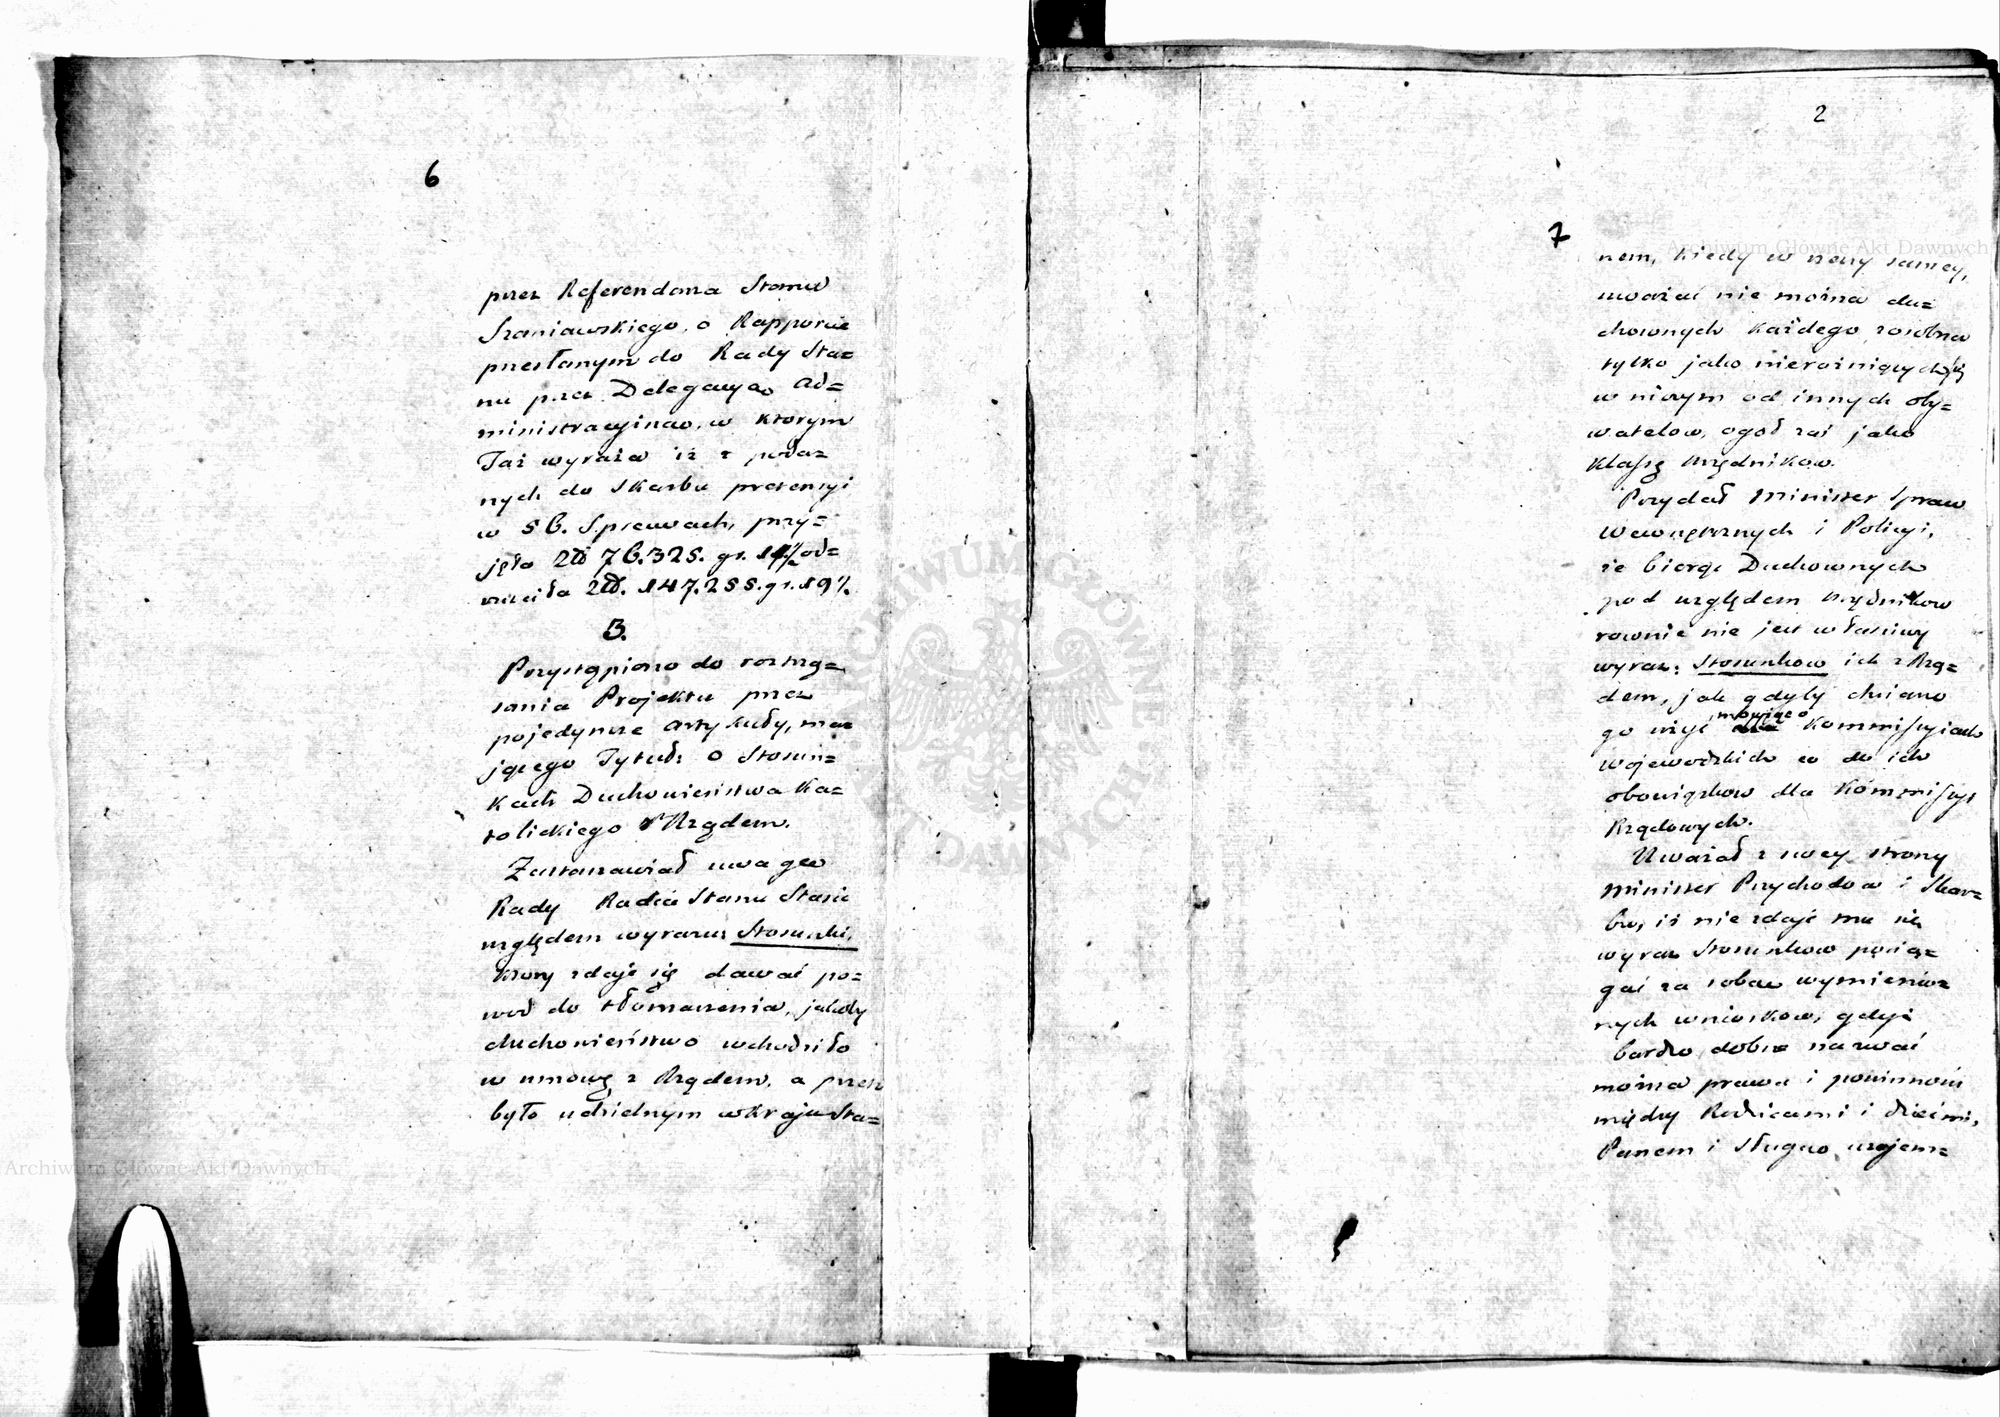 6
przez Referendarza Stanu
Szaniawskiego, o Rapporcie
przesłanym do Rady Sta=
nu przez Delegacyą Ad=
ministracyjną, w którym
Taż wyraża iż z poda=
nych do Skarbu pretensyi
w 56. Sprawach, przy=
jęła Złł 76.325. gr. od=
rzuciła Złł. 147.255. gr. 19½.
B.
Przystąpiono do roztrzą=
sania Projektu przez
pojedyncze Artykuły, ma=
jącego Tytuł: O Stosun=
kach Duchowieństwa Ka=
tolickiego z Rządem.
Zastanawiał uwagę
Rady Radca Stanu Stasic
względem wyrazu: Stosunki,
który zdaje się dawać po=
wód do tłomaczenia, jakoby
duchowieństwo wchodziło
w umowę z Rządem, a przez
było udzielnym w Kraju Sta=
2
7
nem, kiedy w rzeczy samey,
uważać nie można du=
chownych każdego zosobna
tylko jako nierożniących się
w niczym od innych oby=
watelow, ogoł zaś jako
Klassę Urzędnikow.
Przydał Minister Spraw
Wewnętrznych i Policyi,
że biorąc Duchownych
pod względem Urzędnikow
rownie nie jest właściwy
wyraz: Stosunkow ich z Rzą=
dem, jak gdyby chciano
go użyć mowiąc o Kommissyiach
Wojewodzkich co do ich
obowiązkow dla Kommissyi
Rządowych.
Uważał z swey strony
Minister Przychodow i Skar=
bu, iż nie zdaje mu się
wyraz Stosunkow pocią=
gać za sobą wymienio=
nych wnioskow, gdyż
bardzo dobrze nazwać
można prawa i powinności
między Rodzicami i dziećmi,
Panem i Sługą, wzajem=
Archiwum Główne Akt Dawnych
Archiwum Główne Akt Dawnych
ARCHIWUM GŁÓWNE AKT DAWNYCH